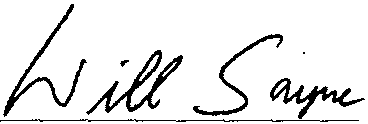 Will Sayne